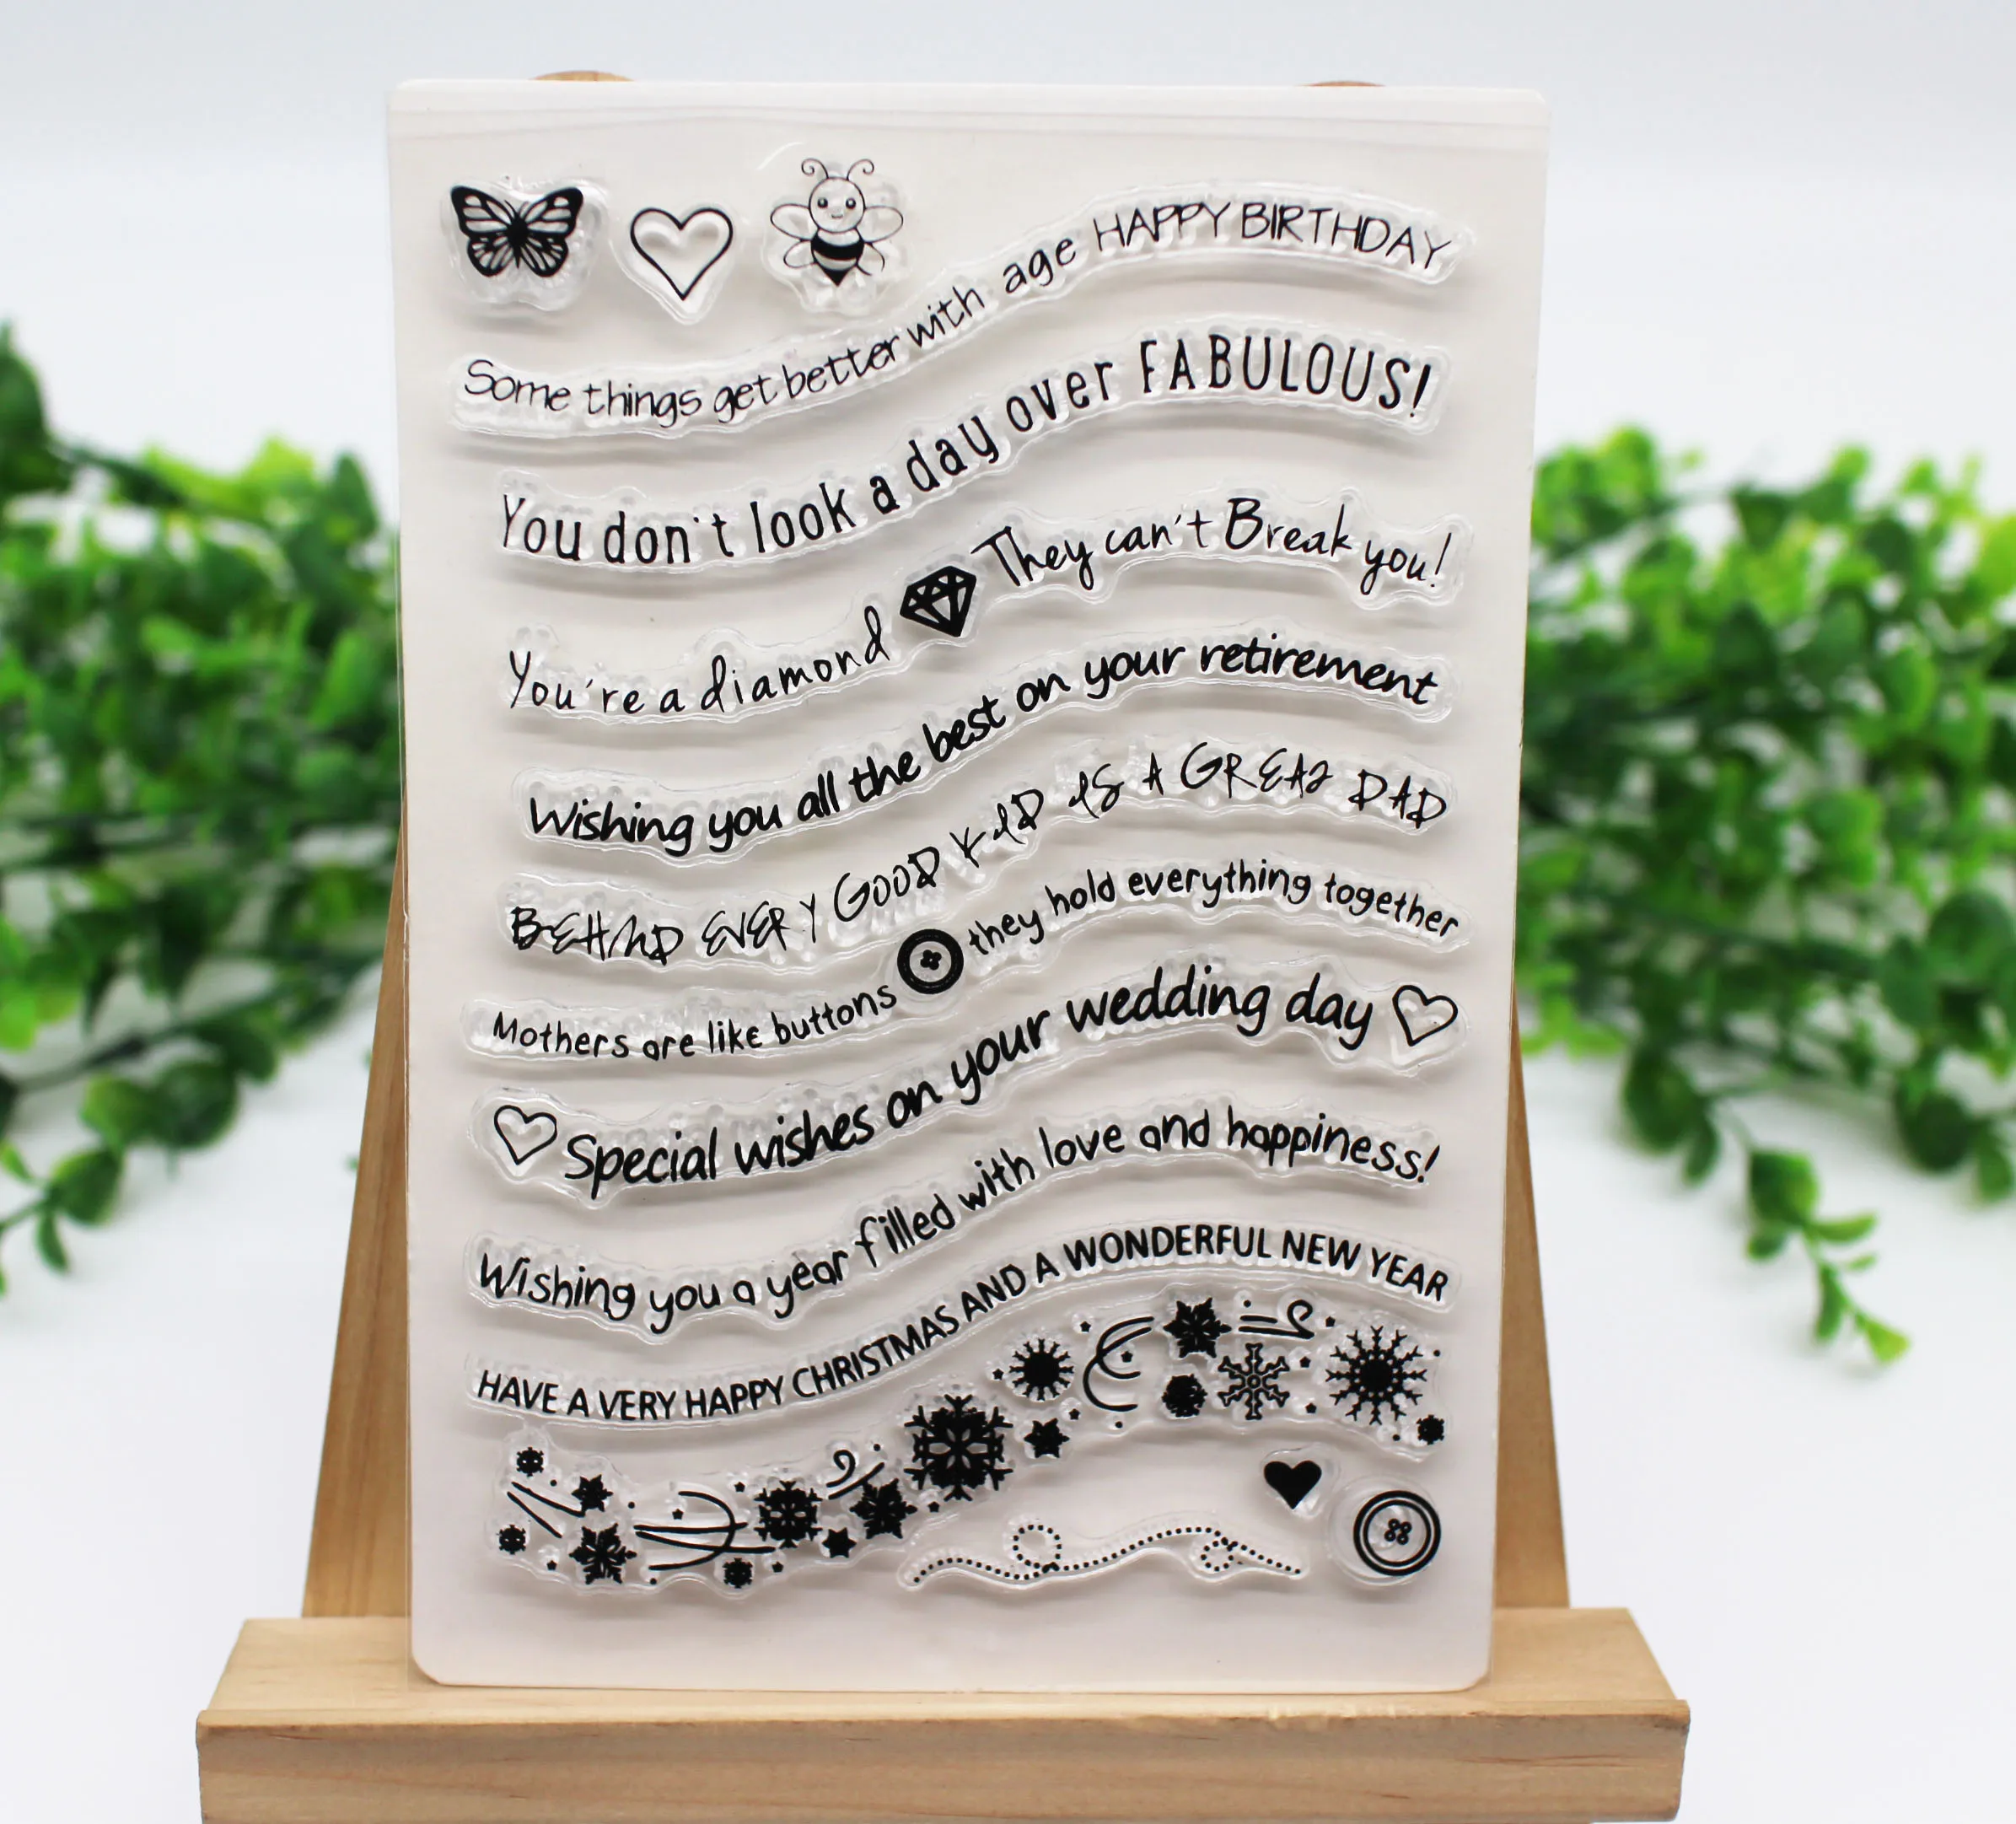 Some things get better with age HAPPY BIRTHDAY
You don't look a day over FABULOUS!
You're a diamond They can't Break you!
Wishing you all the best on your retirement
BEHIND EVERY GOOD KID IS A GREAT DAD
Mothers are like buttons they hold everything together
Special wishes on your wedding day
Wishing you a year filled with love and happiness!
HAVE A VERY HAPPY CHRISTMAS AND A WONDERFUL NEW YEAR